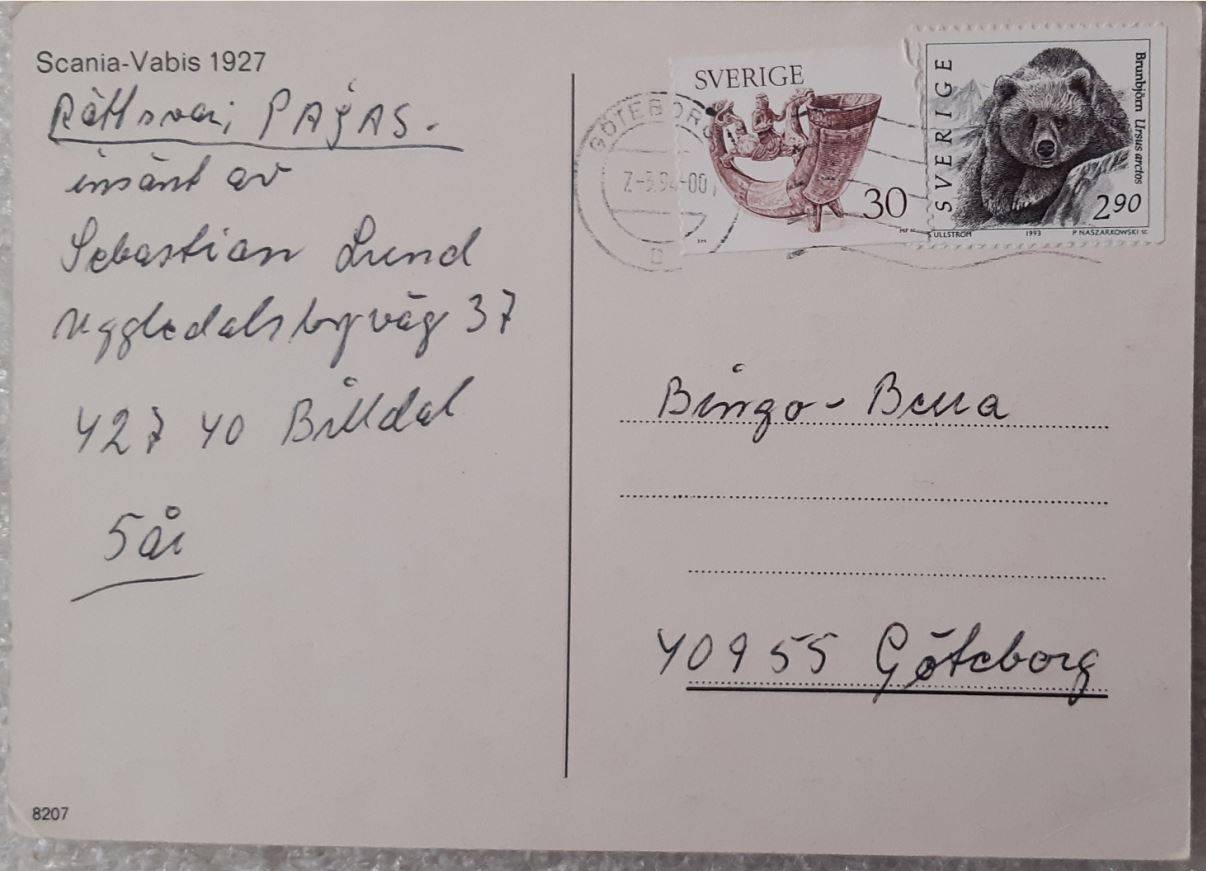 Scania-Vabis 1927
Rätt svar; PAJAS.
insänt av
Sebastian Lund
Uggledalsbyväg 37
427 40 Billdal
5 år
8207
GÖTEBORG
7-3.94-00
SVERIGE
30
SVERIGE
Brunbjörn Ursus arctos
2 90
S. ULLSTRÖM 1993 P NASZARKOWSKI SC
Bingo-Berra
409 55 Göteborg